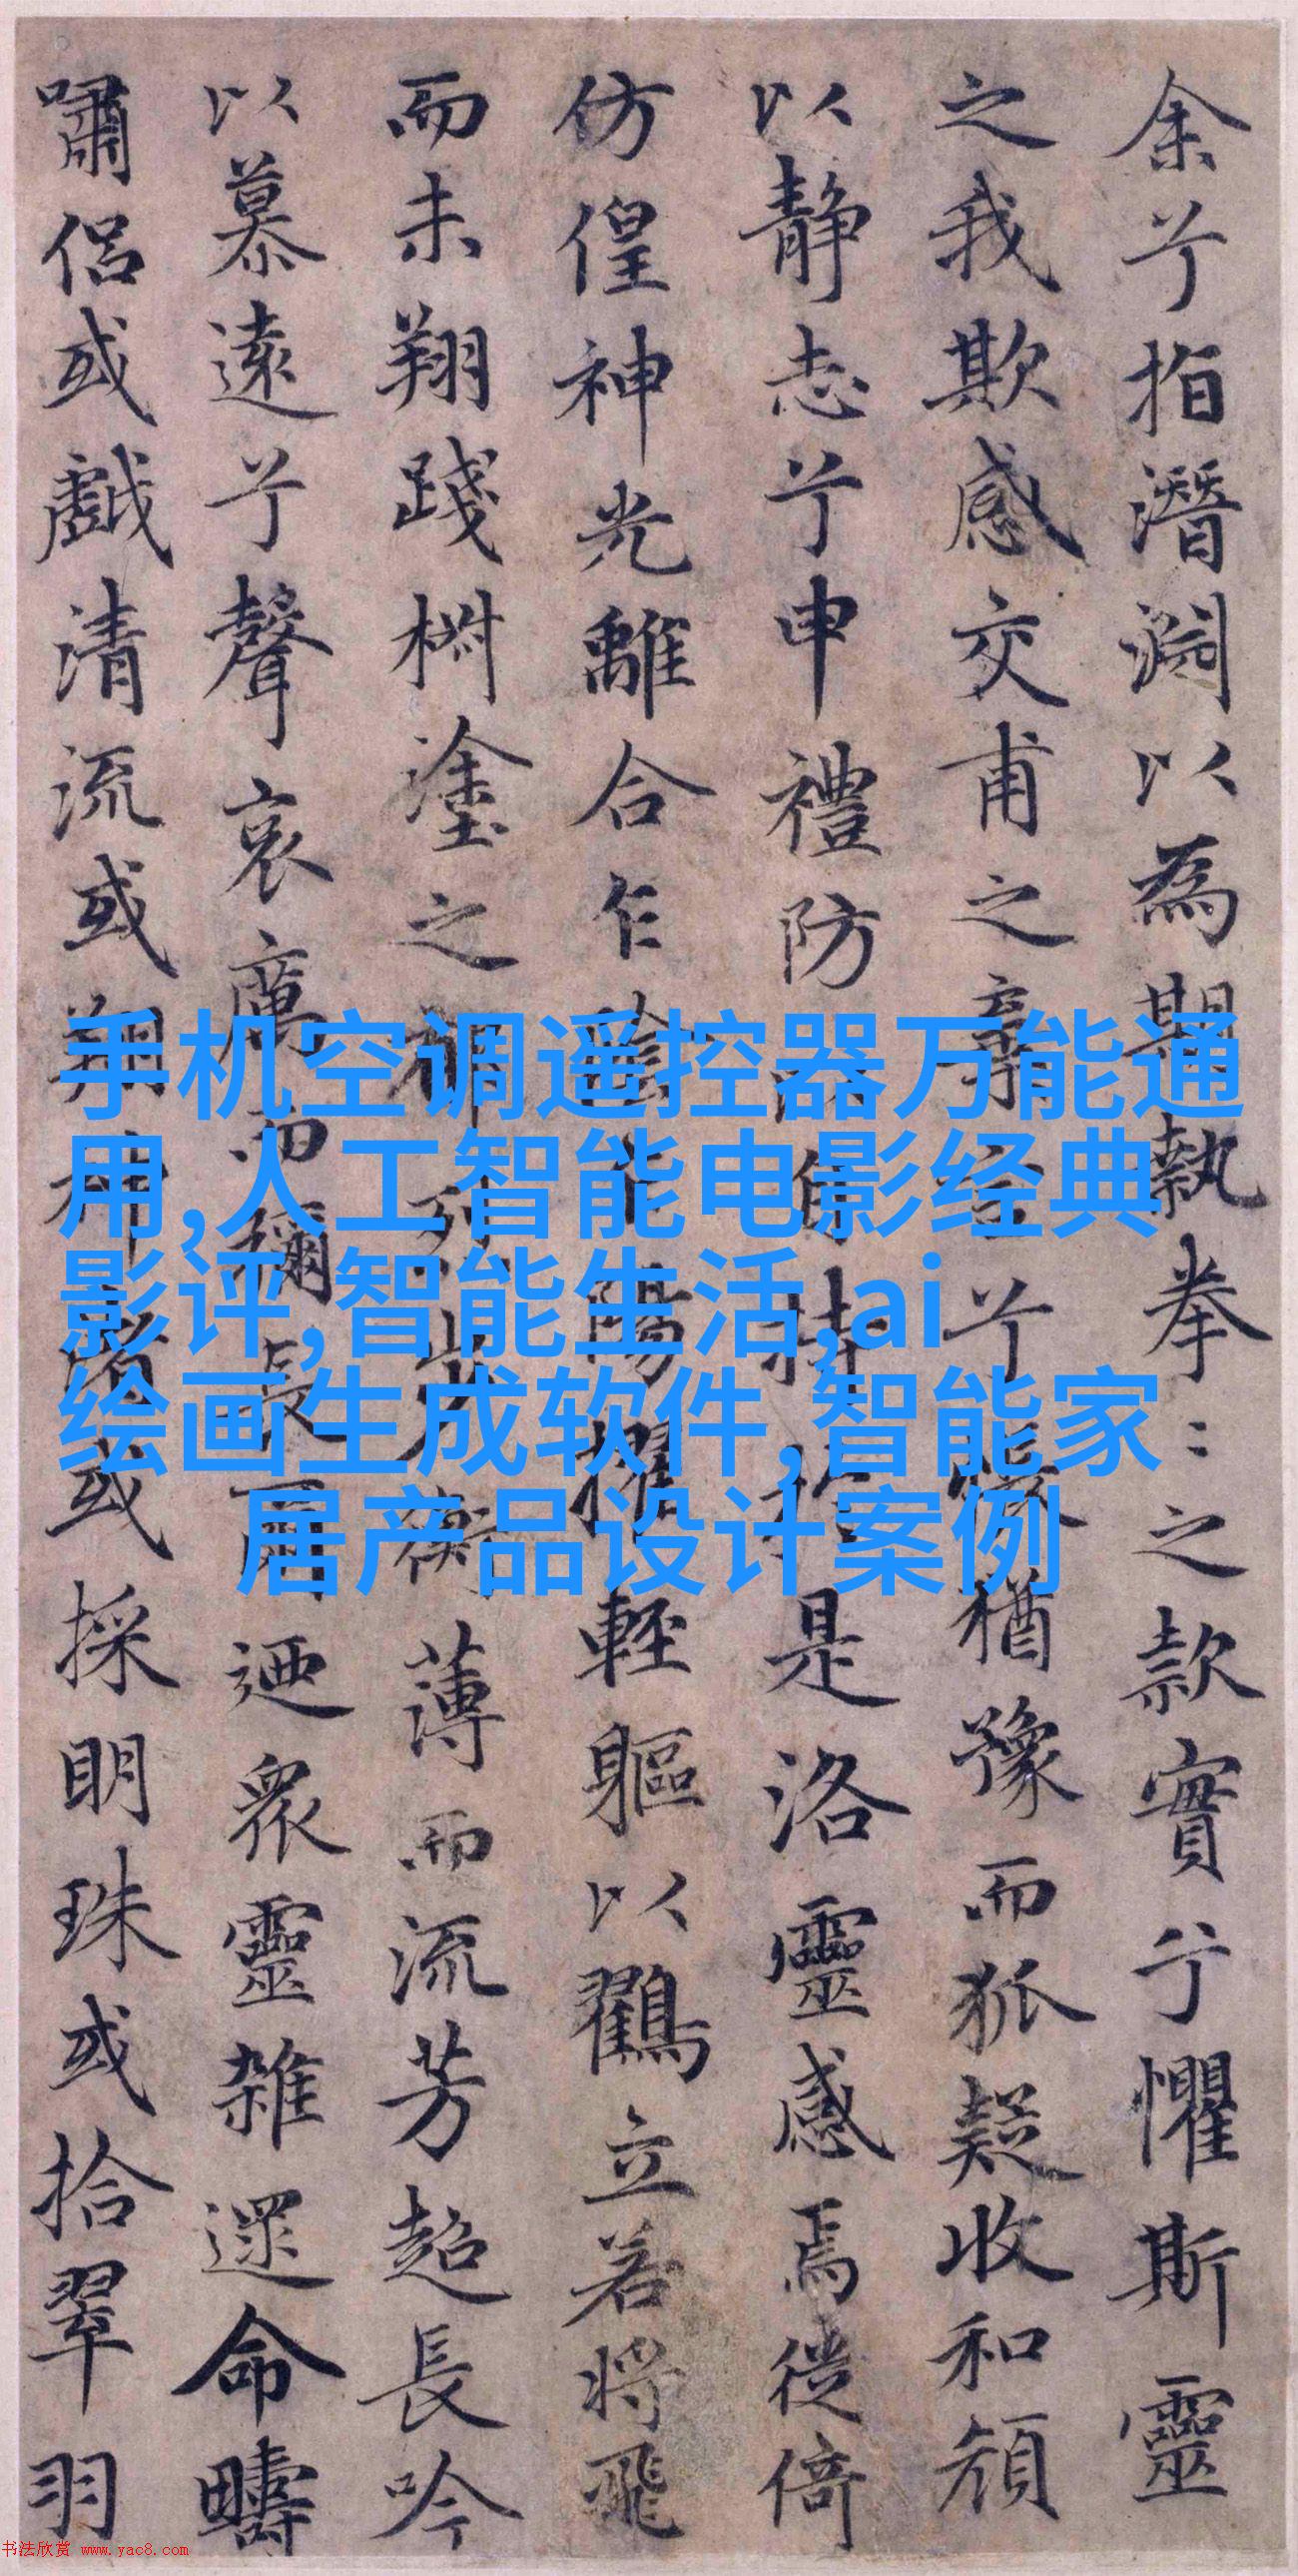 余兮指潛淵以為期執拳〻之款實兮懼斯靈
之我欺感交甫之棄言兮悵猶豫而狐疑收和顏
以靜志兮申禮防以自持於是洛靈感焉徙倚
仿偟神光離合乍陰乍陽擢輕軀以鸛立若將飛
而未翔踐椒塗之郁烈步衡薄而流芳超長吟
以慕遠兮聲哀厲而彌長爾迺眾靈雜遝命疇
嘯侶或戲清流或翔神渚或採明珠或拾翠羽
手机空调遥控器万能通
用,人工智能电影经典
影评,智能生活,ai
绘画生成软件,智能家
居产品设计案例
书法欣赏 www.yac8.com